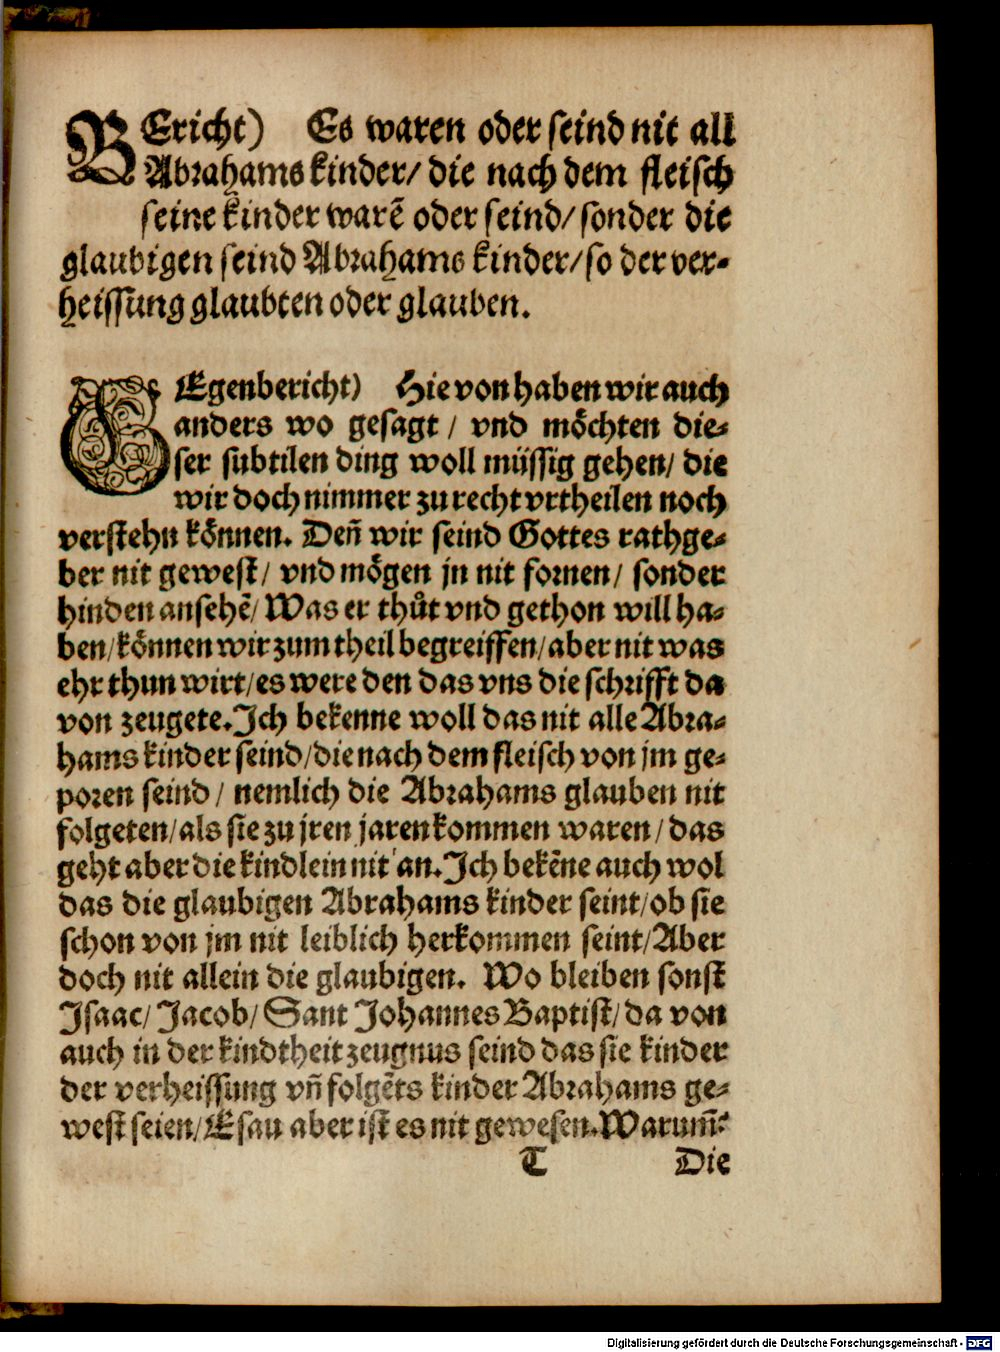 BEricht) Es waren oder seind nit all
Abrahams kinder/ die nach dem fleisch
seine kinder warẽ oder seind/ sonder die
glaubigen seind Abrahams kinder/ so der ver-
heissung glaubten oder glauben.
GEgenbericht) Hie von haben wir auch
anders wo gesagt / vnd möchten die-
ser subtilen ding woll müssig gehen/ die
wir doch nimmer zu recht vrtheilen noch
verstehn können. Deñ wir seind Gottes rathge-
ber nit gewest/ vnd mögen jn nit fornen/ sonder
hinden ansehẽ/ Was er thůt vnd gethon will ha-
ben/ können wir zum theil begreiffen/ aber nit was
ehr thun wirt/ es were den das vns die schrifft da
von zeugete. Ich bekenne woll das nit alle Abra-
hams kinder seind/ die nach dem fleisch von jm ge-
poren seind / nemlich die Abrahams glauben nit
folgeten/ als sie zu jren jaren kommen waren/ das
geht aber die kindlein nit an. Ich bekẽne auch wol
das die glaubigen Abrahams kinder seint/ ob sie
schon von jm nit leiblich herkommen seint/ Aber
doch nit allein die glaubigen. Wo bleiben sonst
Isaac/ Jacob/ Sant Johannes Baptist/ da von
auch in der kindtheit zeugnus seind das sie kinder
der verheissung vñ folgẽts kinder Abrahams ge-
west seien/ Esau aber ist es nit gewesen. Warum̃?
T Die
Digitalisierung gefördert durch die Deutsche Forschungsgemeinschaft - DFG